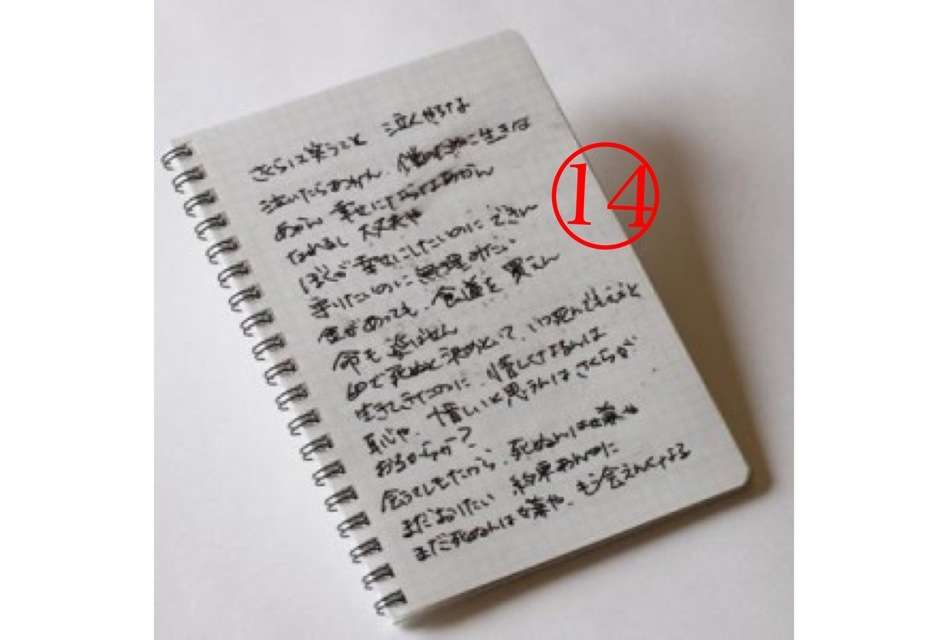 さくらは笑うこと 泣くやろな
泣いたらあかん、 に生きな
あかん 幸せにならなあかん
なれるし 大丈夫や
ぼくが幸せにしたいのに できん
守りたいのに 無理みたい
金があっても、食道を 買えん
命も 延ばせん
60で死ぬと決めとって、いつ死んでもええと
生きてきたのに、惜しくなるんは
恥や、惜しいと思えんはさくらが
おるからか?
会うてしもたから、死ぬんは嫌や
まだおりたい 約束あんのに
まだ死ぬんは嫌や、もう会えんくなる
14